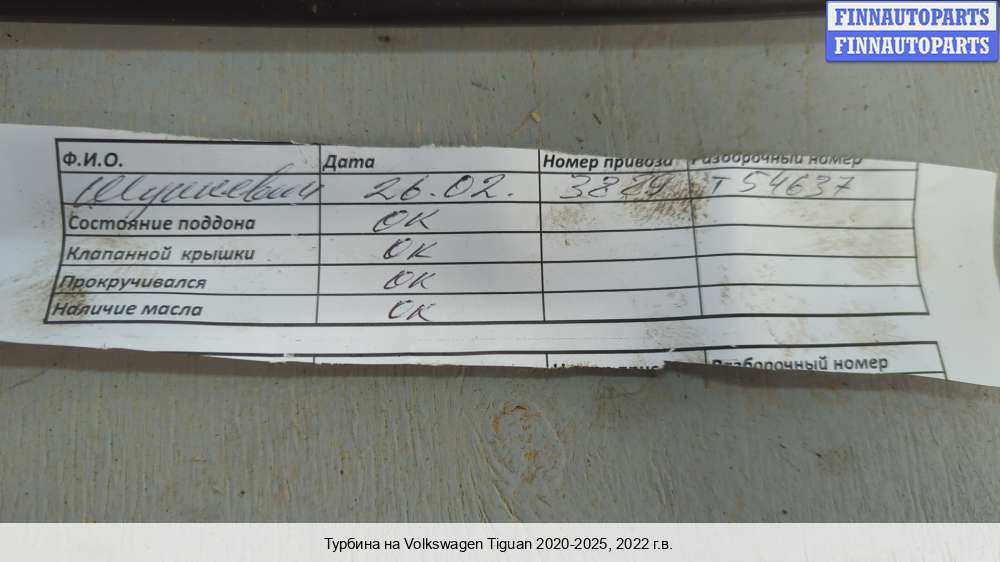 FINNAUTOPARTS
FINNAUTOPARTS
Ф.И.О. Дата Номер привоза Разборочный номер
Шушкевич 26.02. 3829 Т 54637
Состояние поддона ОК
Клапанной крышки ОК
Прокручивался ОК
Наличие масла ОК
Разборочный номер
Турбина на Volkswagen Tiguan 2020-2025, 2022 г.в.